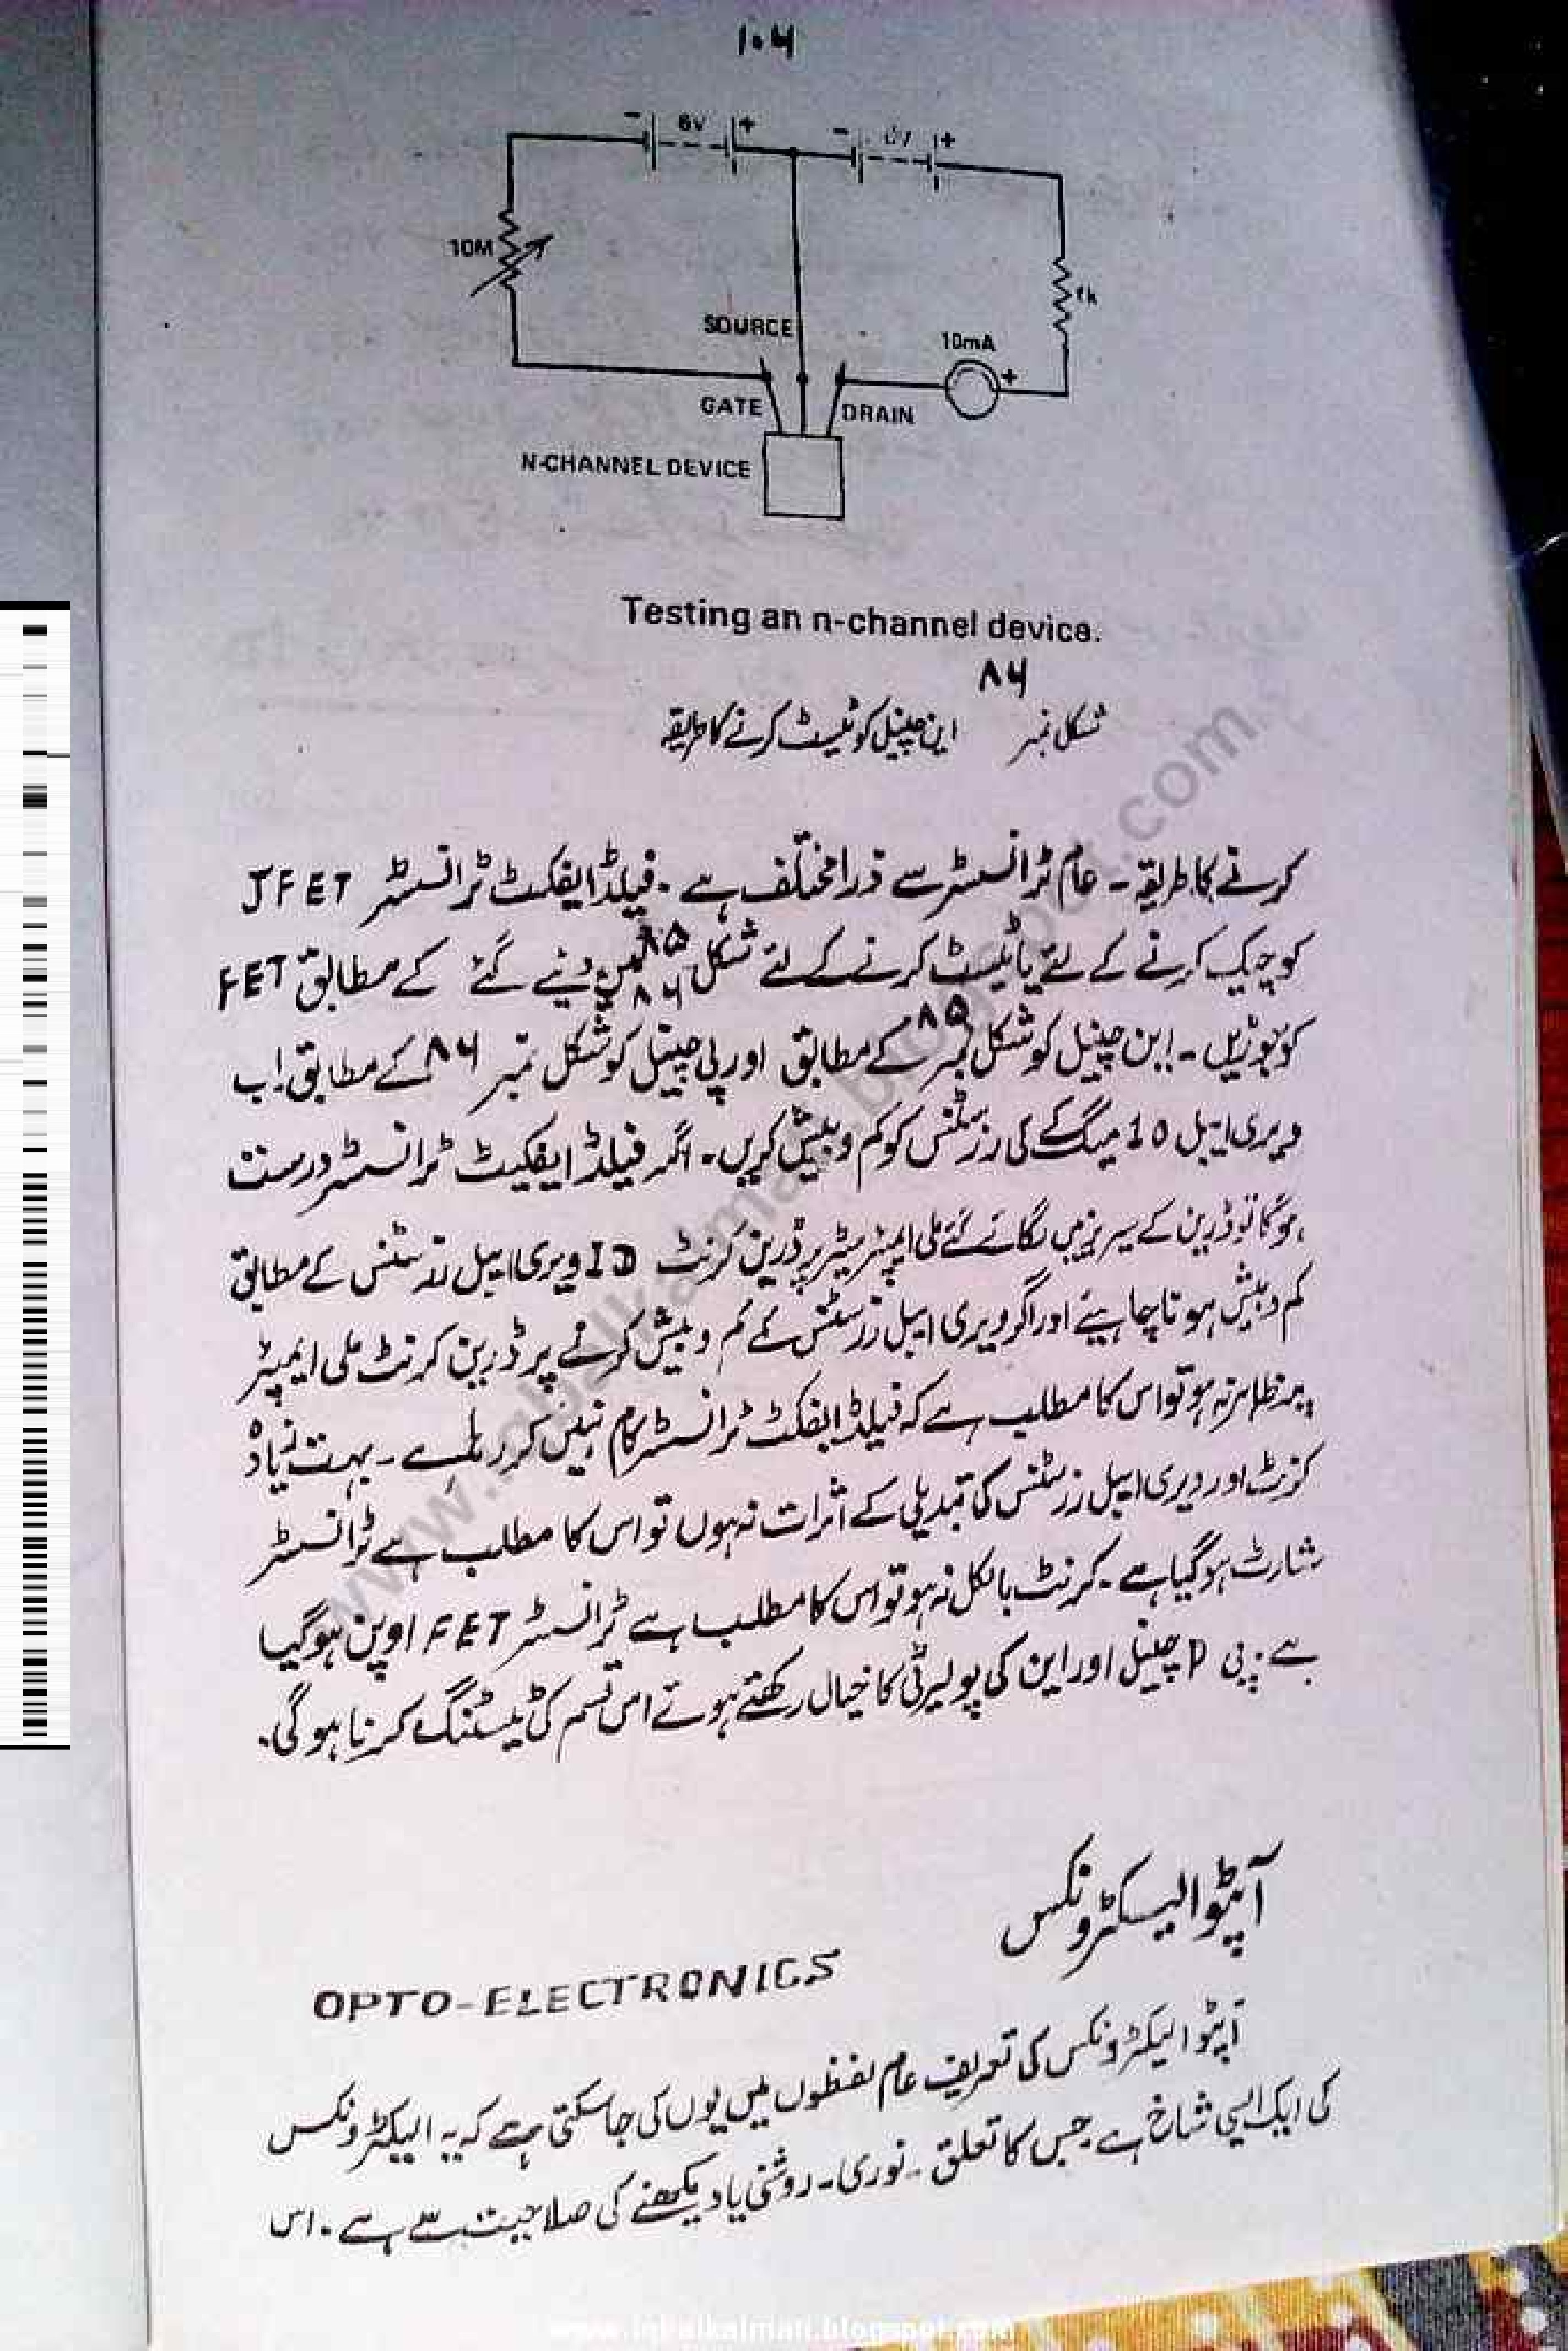 ۱۰۶
- 6V + - 6V +
10M
1k
SOURCE
10mA
+
GATE DRAIN
N-CHANNEL DEVICE
Testing an n-channel device.
شکل نمبر ۸۶ این چینل کو ٹیسٹ کرنے کا طریقہ
کرنے کا طریقہ - عام ٹرانسسٹر سے ذرا مختلف ہے - فیلڈ ایفکٹ ٹرانسسٹر JFET
کو چیک کرنے کے لئے یا ٹیسٹ کرنے کے لئے شکل ۸۵ ۸۶ میں دیئے گئے کے مطابق FET
کو جوڑیں - این چینل کو شکل نمبر ۸۵ کے مطابق اور پی چینل کو شکل نمبر ۸۶ کے مطابق - اب
ویری ایبل 10 میگ کی رزسٹنس کو کم و بیش کریں - اگر فیلڈ ایفکیٹ ٹرانسسٹر درست
ہو گا تو ڈرین کے سیریز میں لگائے گئے ملی ایمپئر میٹر پر ڈرین کرنٹ ID ویری ایبل رزسٹنس کے مطابق
کم و بیش ہونا چاہیئے اور اگر ویری ایبل رزسٹنس کے کم و بیش کرنے پر ڈرین کرنٹ ملی ایمپئر
پر ظاہر نہ ہو تو اس کا مطلب ہے کہ فیلڈ ایفکٹ ٹرانسسٹر کام نہیں کر رہا ہے - بہت زیادہ
کرنٹ اور ویری ایبل رزسٹنس کی تبدیلی کے اثرات نہ ہوں تو اس کا مطلب ہے ٹرانسسٹر
شارٹ ہو گیا ہے - کرنٹ بالکل نہ ہو تو اس کا مطلب ہے ٹرانسسٹر FET اوپن ہو گیا
ہے - پی P چینل اور این کی پولیرٹی کا خیال رکھتے ہوئے اس قسم کی ٹیسٹنگ کرنا ہو گی -
آپٹو الیکٹرونکس
OPTO-ELECTRONICS
آپٹو الیکٹرونکس کی تعریف عام لفظوں میں یوں کی جا سکتی ہے کہ یہ الیکٹرونکس
کی ایک ایسی شاخ ہے جس کا تعلق - نوری - روشنی یا دیکھنے کی صلاحیت سے ہے - اس
www.iqbalkalmati.blogspot.com